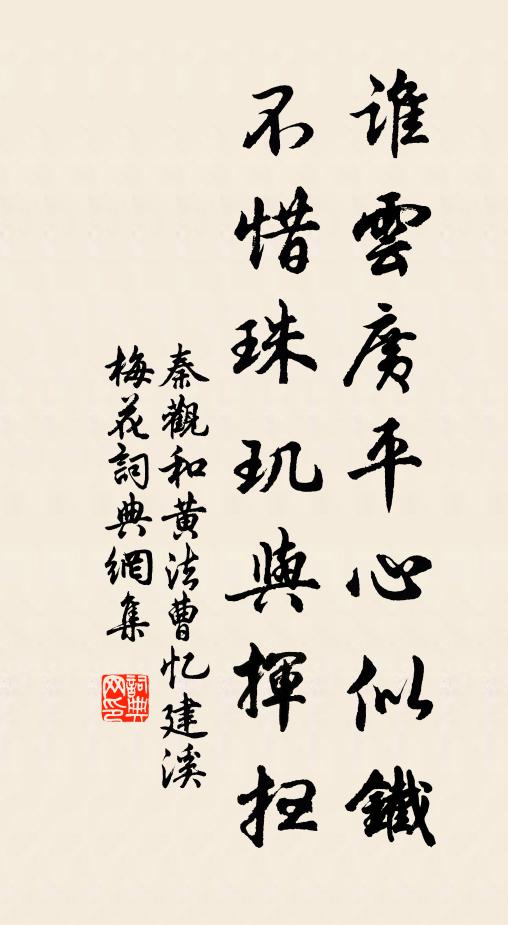 誰雲廣平心似鐵
不惜珠玑與揮扫
秦觀和黄法曹忆建溪
梅花詞典網集
詞典网印